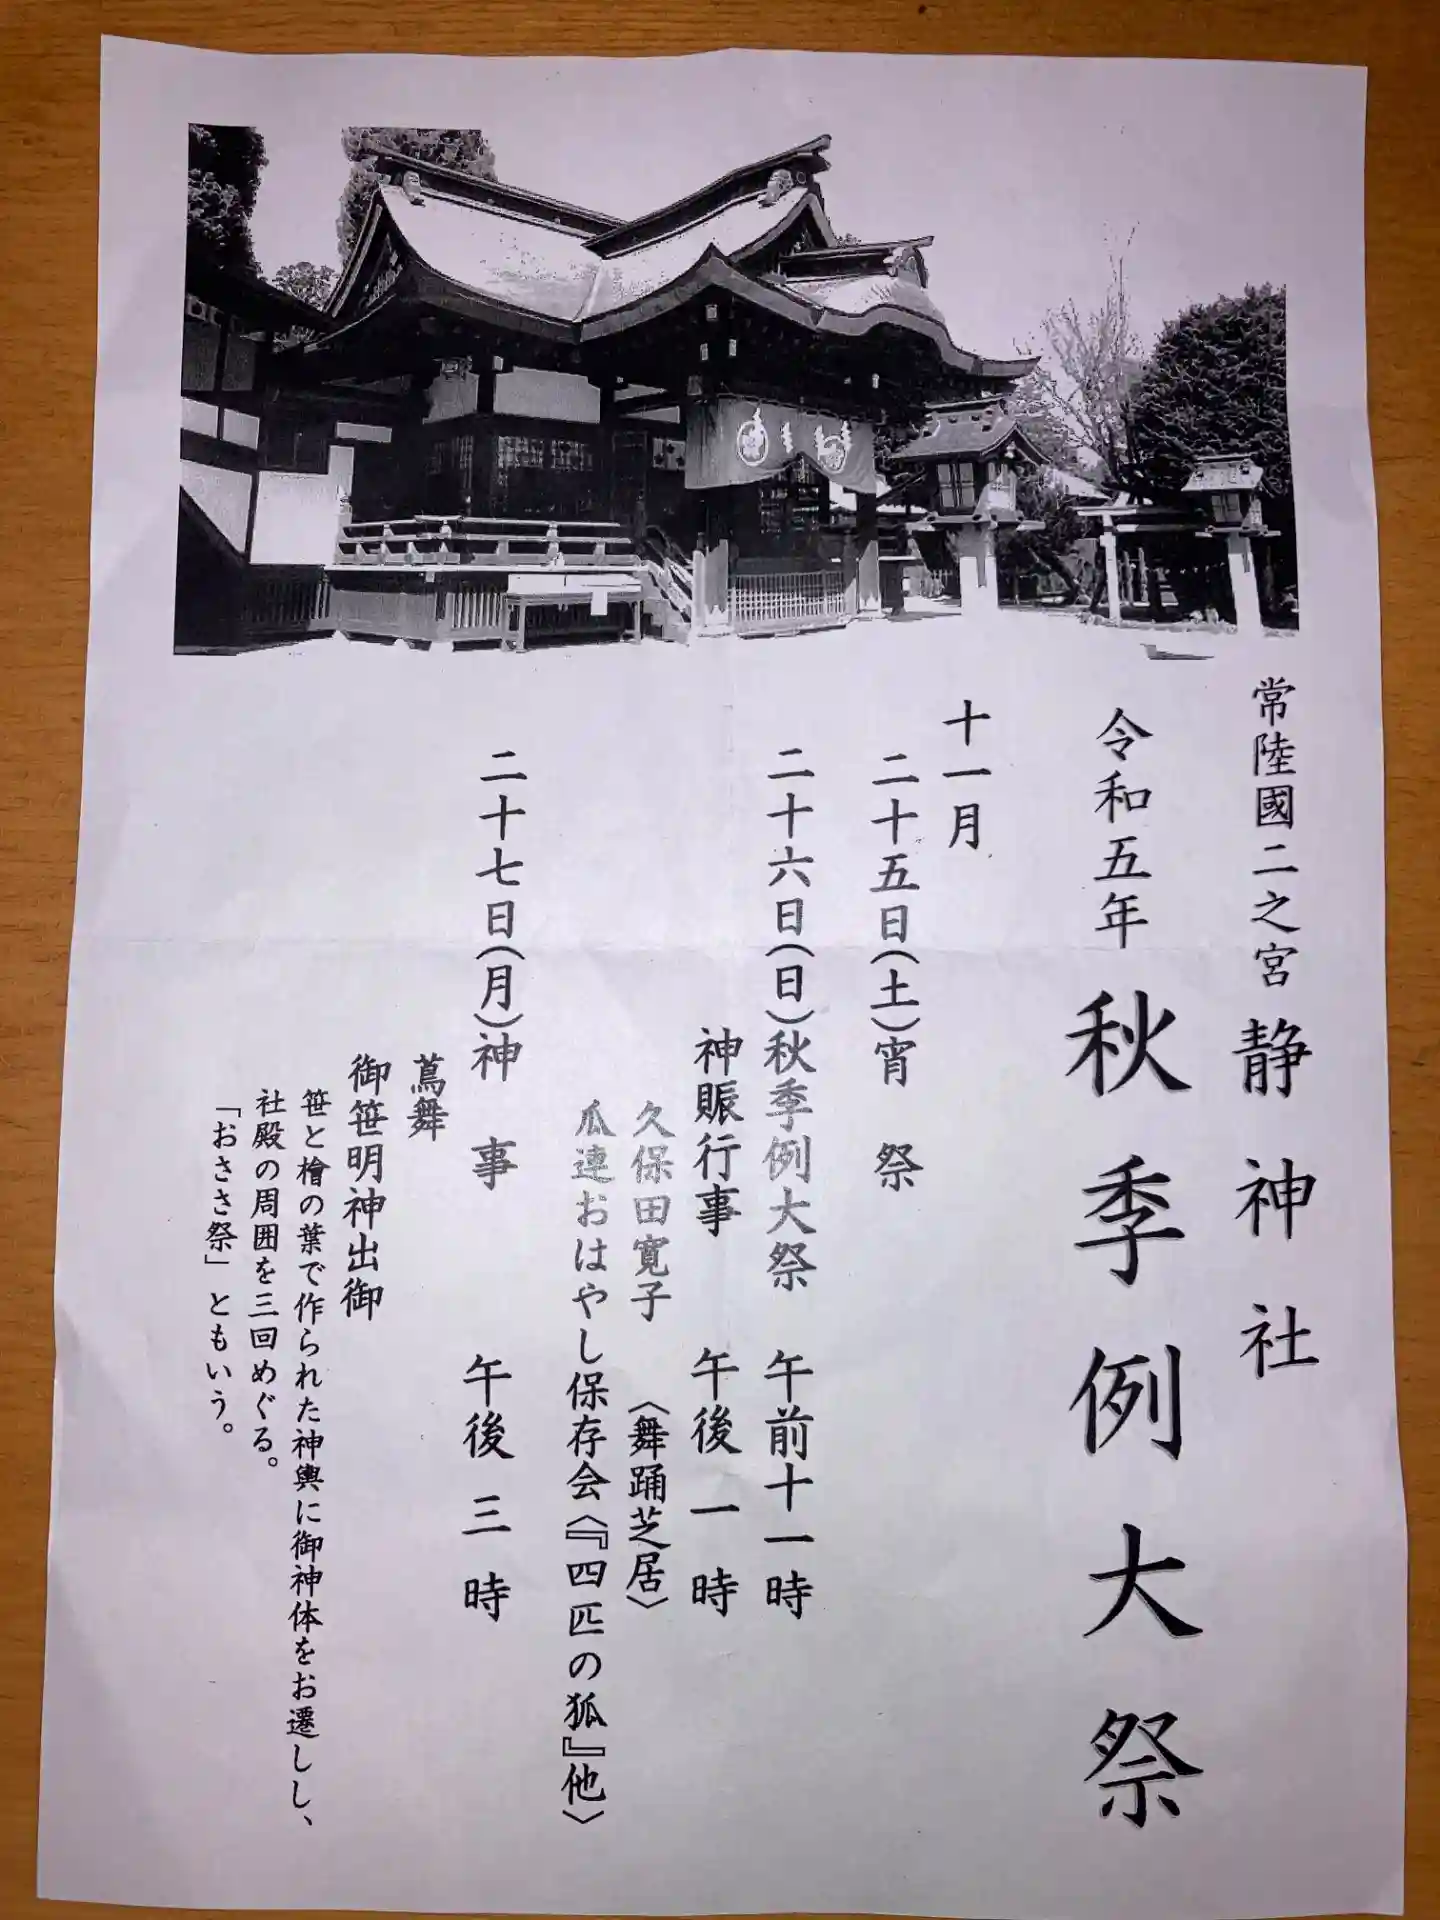 常陸國二之宮 静神社
令和五年 秋季例大祭
十一月
二十五日(土)宵 祭
二十六日(日)秋季例大祭 午前十一時
神賑行事 午後一時
久保田寛子 〈舞踊芝居〉
瓜連おはやし保存会〈『四匹の狐』他〉
二十七日(月)神 事 午後三時
蔦舞
御笹明神出御
笹と檜の葉で作られた神輿に御神体をお遷しし、
社殿の周囲を三回めぐる。
「おささ祭」ともいう。